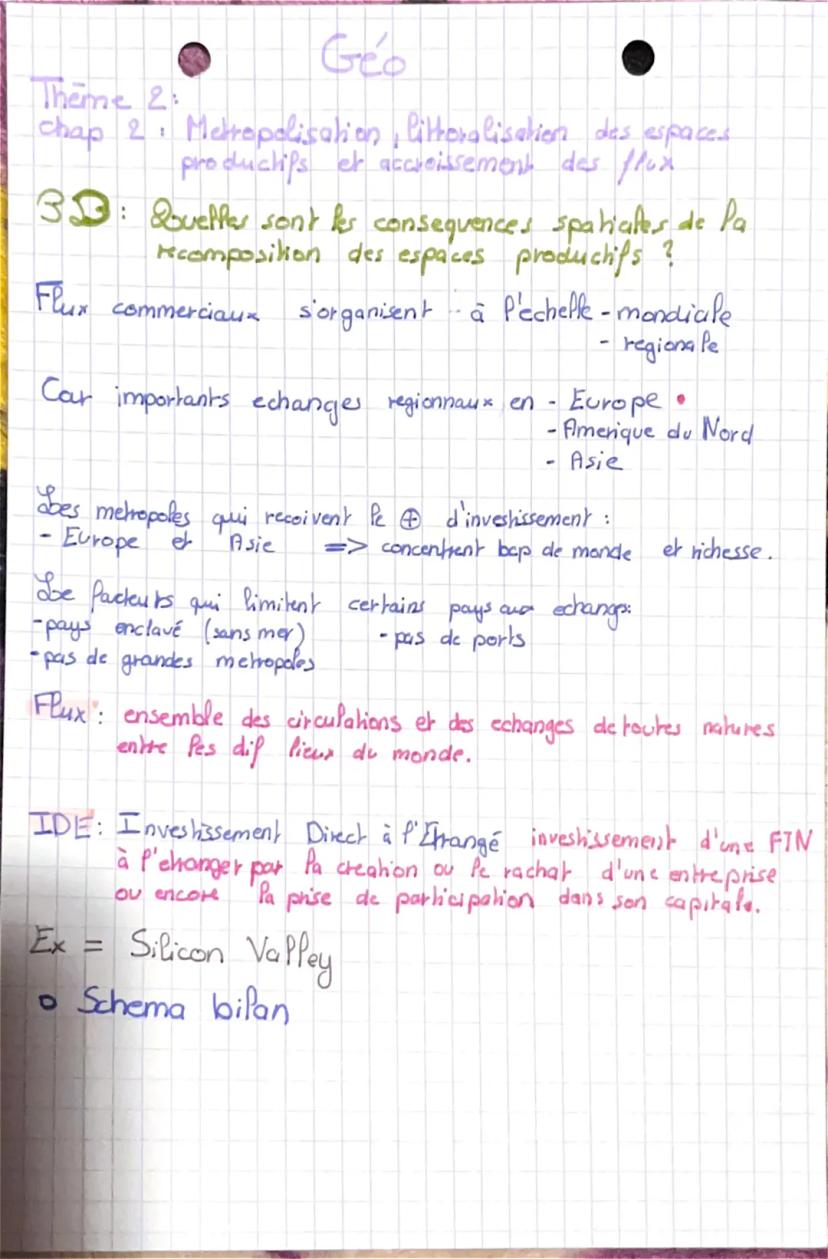 Géo
Thème 2:
chap 2: Metropolisation, littoralisation des espaces
productifs et accroissement des flux
3D: Quelles sont les consequences spatiales de la
recomposition des espaces productifs ?
Flux commerciaux s'organisent à l'échelle - mondiale
- regionale
Car importants echanges regionnaux en - Europe
- Amerique du Nord
- Asie
Les metropoles qui recoivent le ⊕ d'investissement :
- Europe et Asie => concentrent bcp de monde et richesse.
Le facteurs qui limitent certains pays aux echange:
- pays enclavé (sans mer) - pas de ports
- pas de grandes metropoles
Flux : ensemble des circulations et des echanges de toutes natures
entre les dif lieux du monde.
IDE: Investissement Direct à l'Etrangé investissement d'une FTN
à l'etranger par la creation ou le rachat d'une entreprise
ou encore la prise de participation dans son capitale.
Ex = Silicon Valley
o Schema bilan